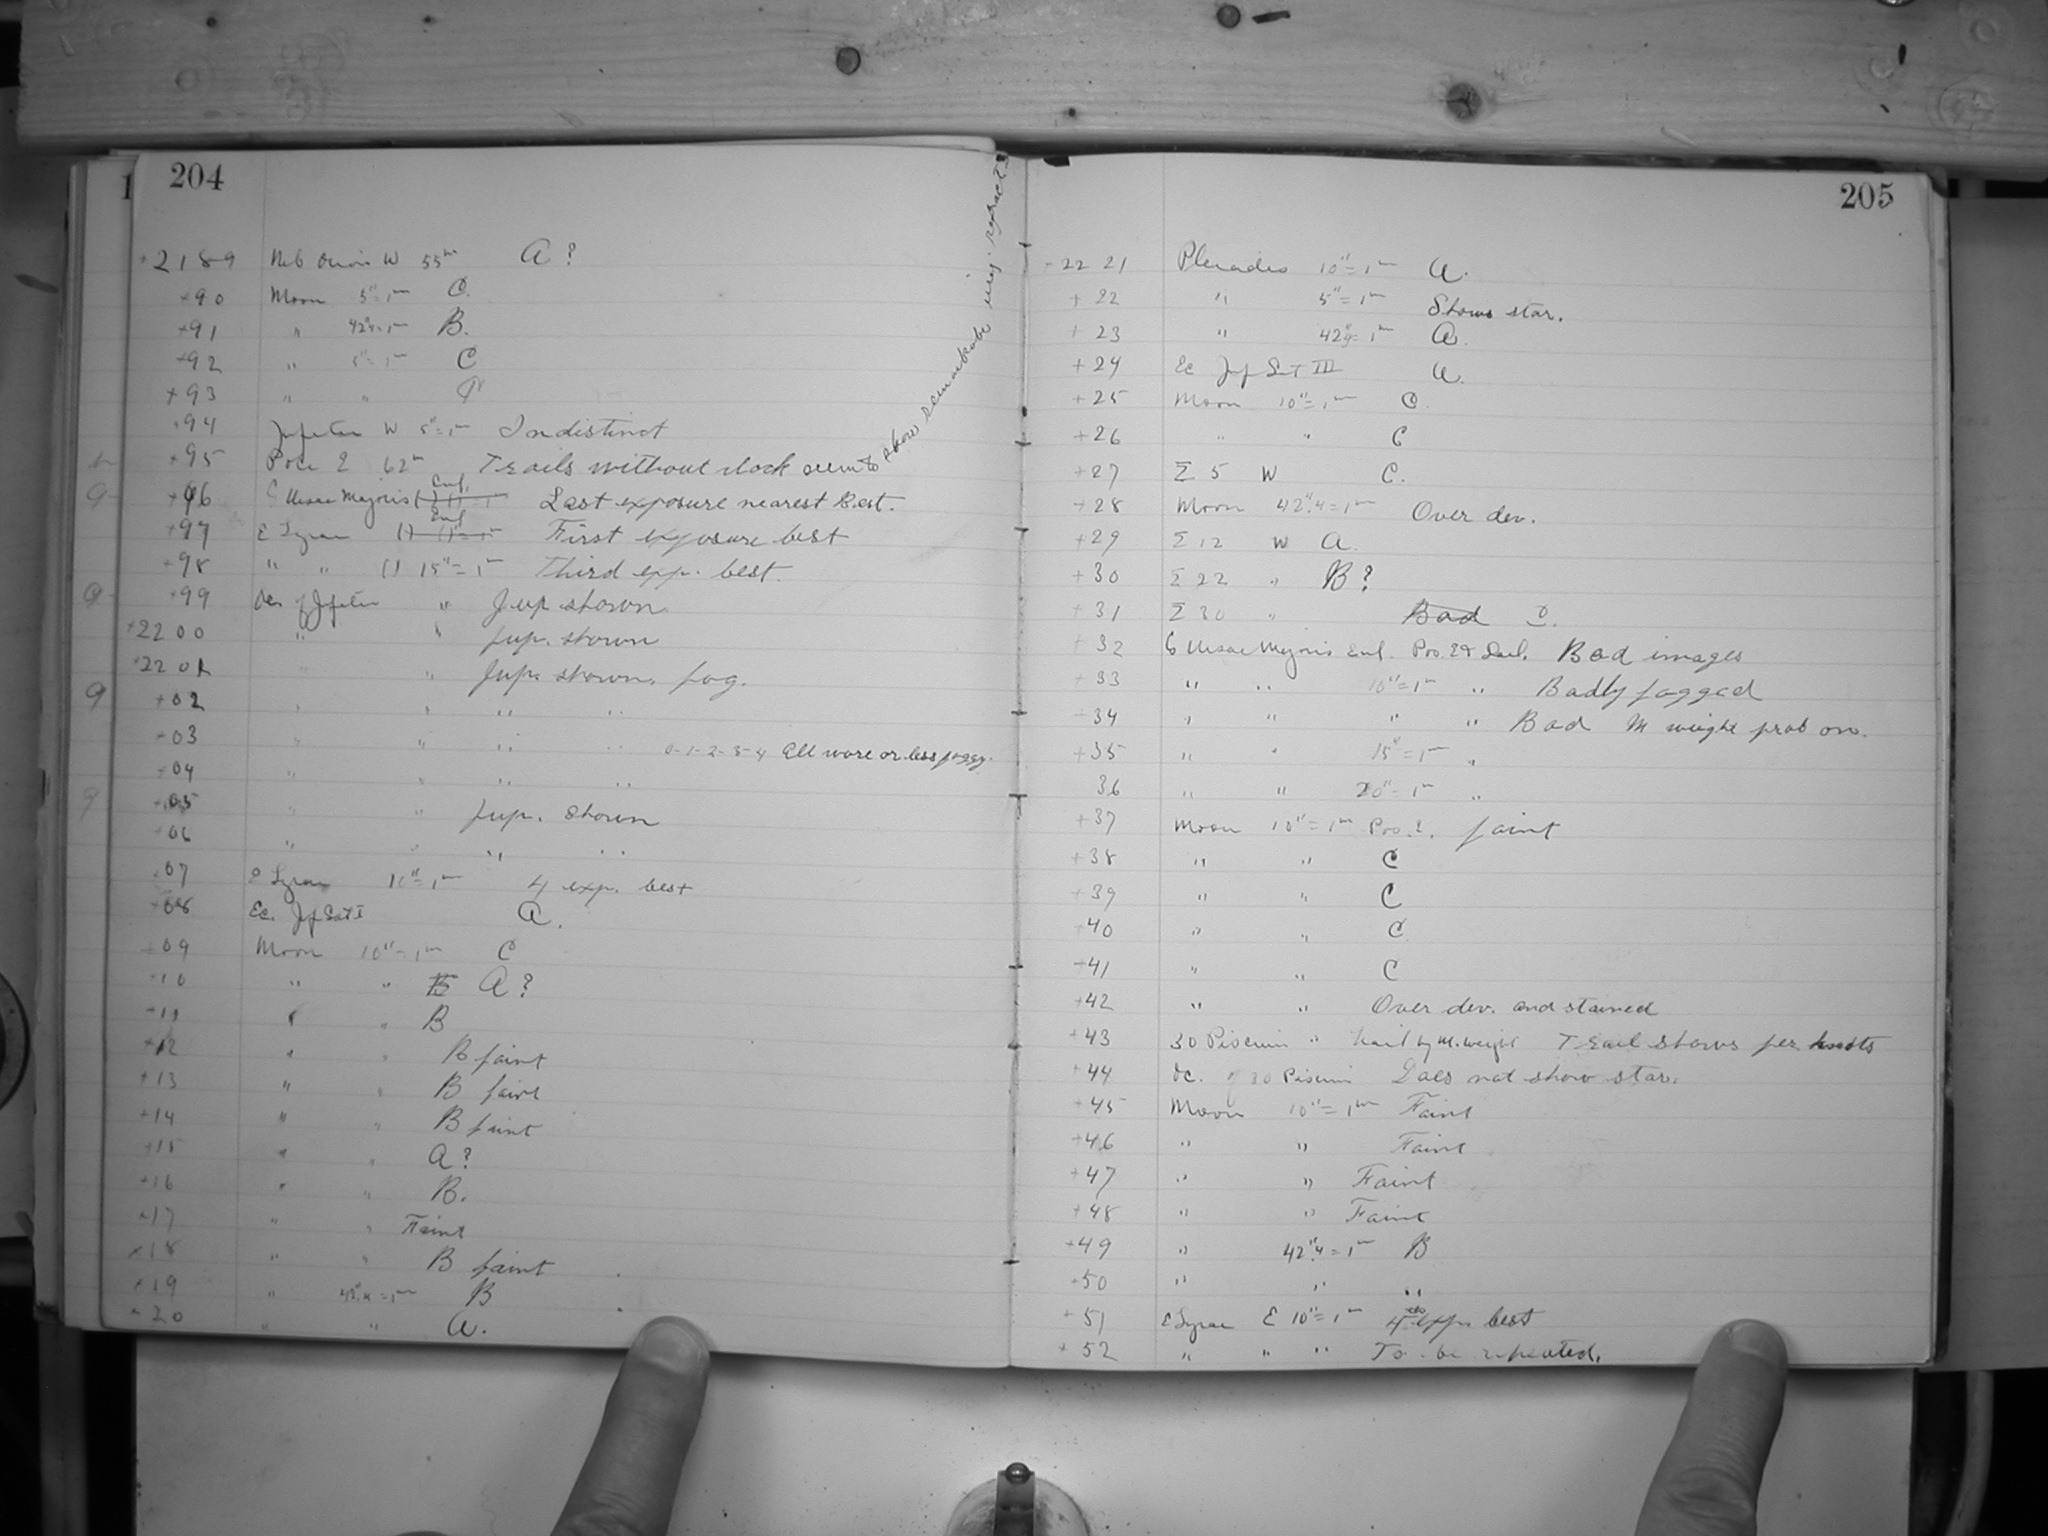 204
+2189 Neb Orion W 55m A?
+90 Moon 5"=1m C.
+91 " 42".4=1m B.
+92 " 5"=1m C
+93 " "
+94 Jupiter W 5"=1m Indistinct
+95 Pole 2 62m Trails without clock seem to show remarkable irreg. refract.
+96 ζ Ursae Majoris Enl. Last exposure nearest Best.
+97 ε Lyrae Enl First exposure best
+98 " " () 15"=1m Third exp. best.
+99 Oc. of Jupiter " Jup shown.
+2200 " " Jup. shown
+2201 " Jup. shown. fog.
+02 " " " "
+03 " " " " 0-1-2-3-4 All more or less foggy.
+04 " " " "
+05 " " Jup. shown
+06 " " " "
+07 ε Lyrae 10"=1m 4 exp. best
+08 Ec. Jup Sat I A.
+09 Moon 10"=1m C
+10 " " B A?
+11 " " B
+12 " " B faint
+13 " " B faint
+14 " " B faint
+15 " " A?
+16 " " B.
+17 " " Faint
+18 " " B faint
+19 " 42".4=1m B
+20 " " A.
205
+2221 Pleiades 10"=1m A.
+22 " 5"=1m Shows star.
+23 " 42".4=1m A.
+24 Ec Jup Sat III A.
+25 Moon 10"=1m C.
+26 " " C
+27 Σ 5 W C.
+28 Moon 42".4=1m Over dev.
+29 Σ 12 W A.
+30 Σ 22 " B?
+31 Σ 30 " Bad C.
+32 ζ Ursae Majoris Enl. Pos. 2 & Decl. Bad images
+33 " " 10"=1m " Badly foggad
+34 " " " " Bad M weight prob on.
+35 " " 15"=1m "
36 " " 20"=1m "
+37 Moon 10"=1m Pos. 2. faint
+38 " " C
+39 " " C
+40 " " C
+41 " " C
+42 " " Over dev. and stained
+43 30 Piscium " trail by M. weight Trail shows per knots
+44 Oc. of 30 Piscium Does not show star.
+45 Moon 10"=1m Faint
+46 " " Faint
+47 " " Faint
+48 " " Faint
+49 " 42".4=1m B
+50 " " "
+51 ε Lyrae E 10"=1m 4th exp. best
+52 " " " To be repeated.